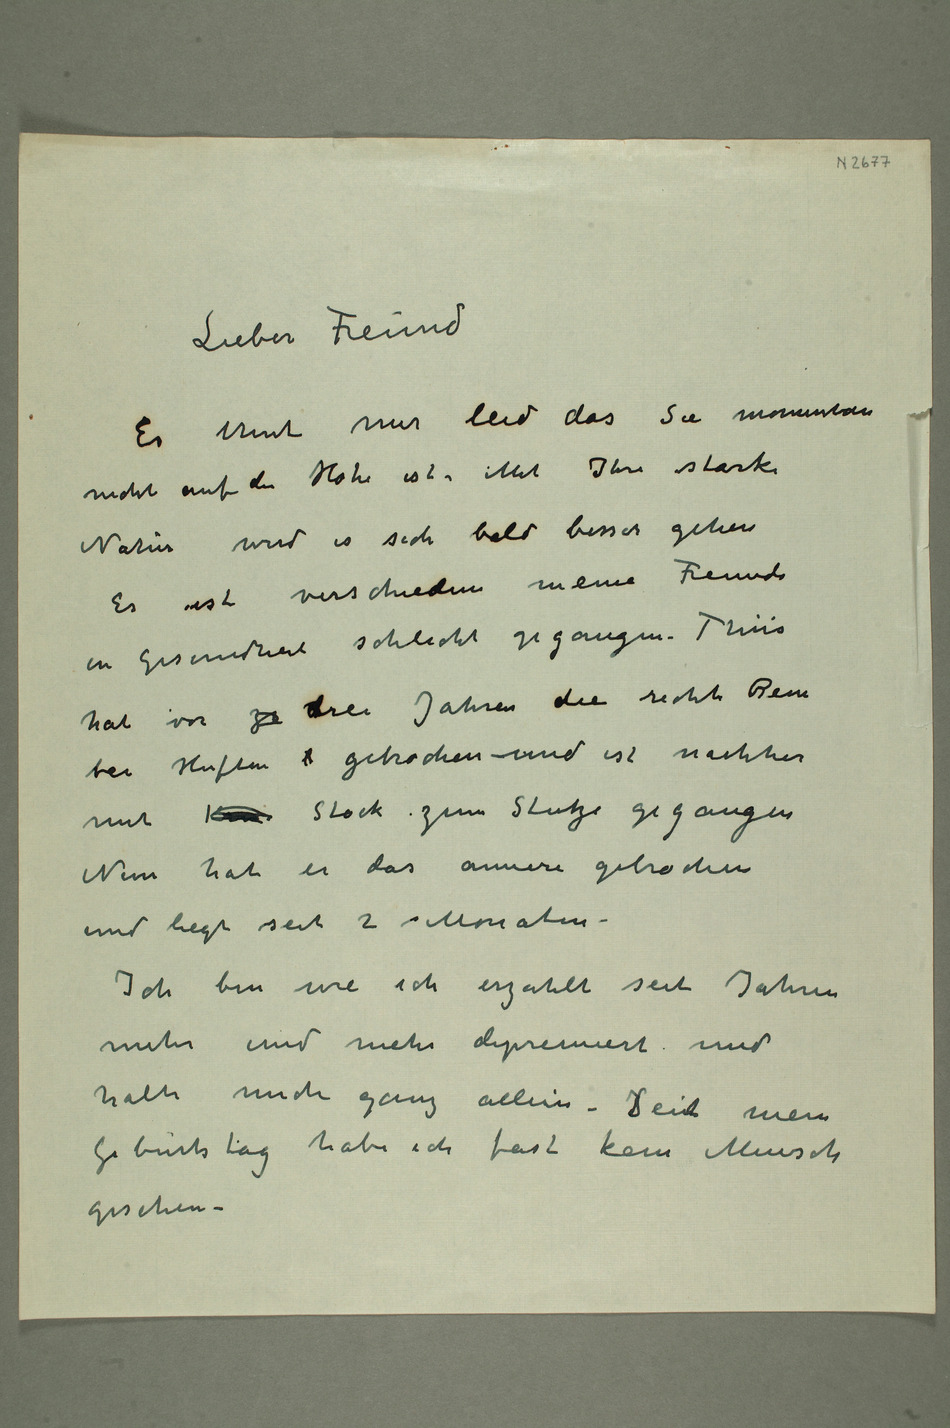 N 2677
Lieber Freund
Es thut mir leid das Sie momentan
nicht auf der Höhe ist. Mit Ihre starke
Natur wird es sich bald besser gehen
Es ist verschiedene meine Freunde
in Gesundheit schlecht gegangen. Thiis
hat vor drei Jahren die rechte Bein
bei Huften gebrochen – und ist nachher
mit Stock zum Stutze gegangen
Nun hat er das annere gebrochen
und liegt seit 2 Monaten –
Ich bin wie ich erzahlt seit Jahren
mehr und mehr depremiert und
halte mich ganz allein – Seit mein
Geburtstag habe ich fast kein Mensch
gesehen –